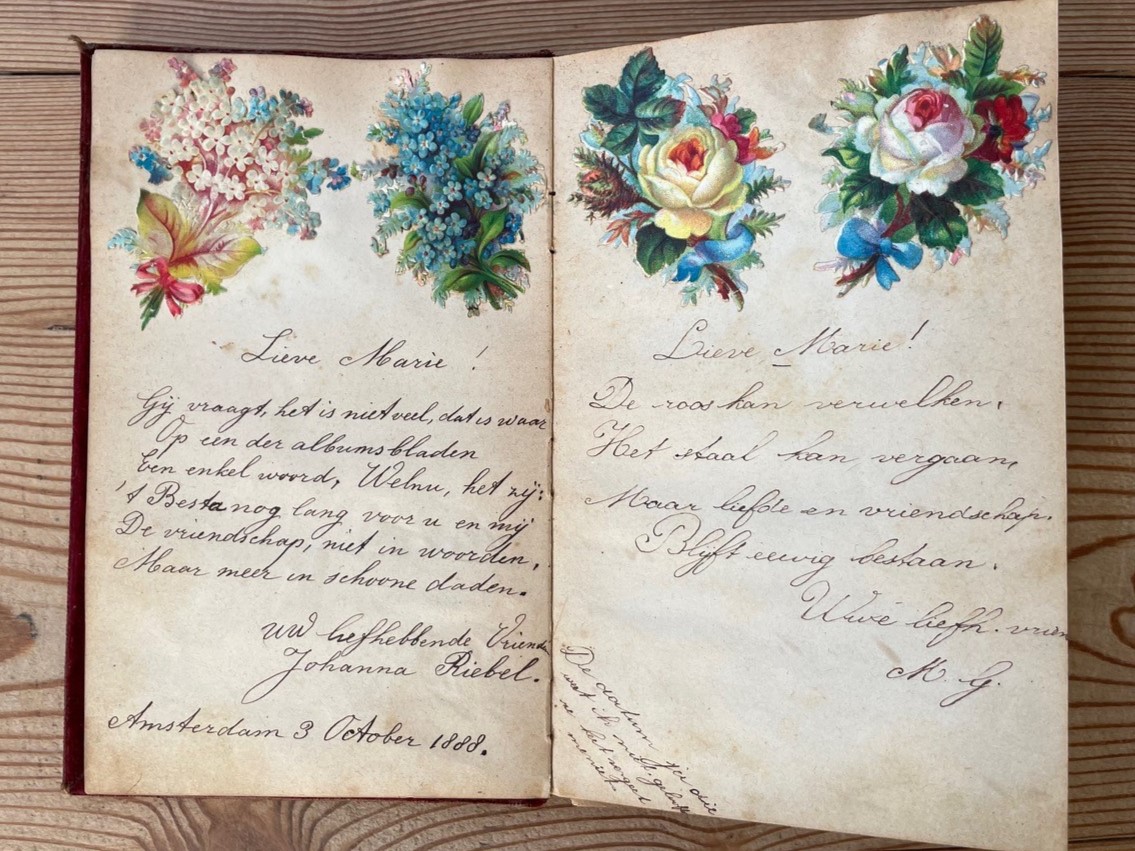 Lieve Marie!
Gij vraagt, het is niet veel, dat is waar
Op een der albumsbladen
Een enkel woord, Welnu, het zij:
't Besta nog lang voor u en mij
De vriendschap, niet in woorden,
Maar meer in schoone daden.
UW liefhebbende Vrien
Johanna Riebel.
Amsterdam 3 October 1888.
Lieve Marie!
De roos kan verwelken.
Het staal kan vergaan,
Maar liefde en vriendschap.
Blijft eeuwig bestaan.
Uwe liefh. vrien
M. G.
De datum
wat ik niet
het
me niet